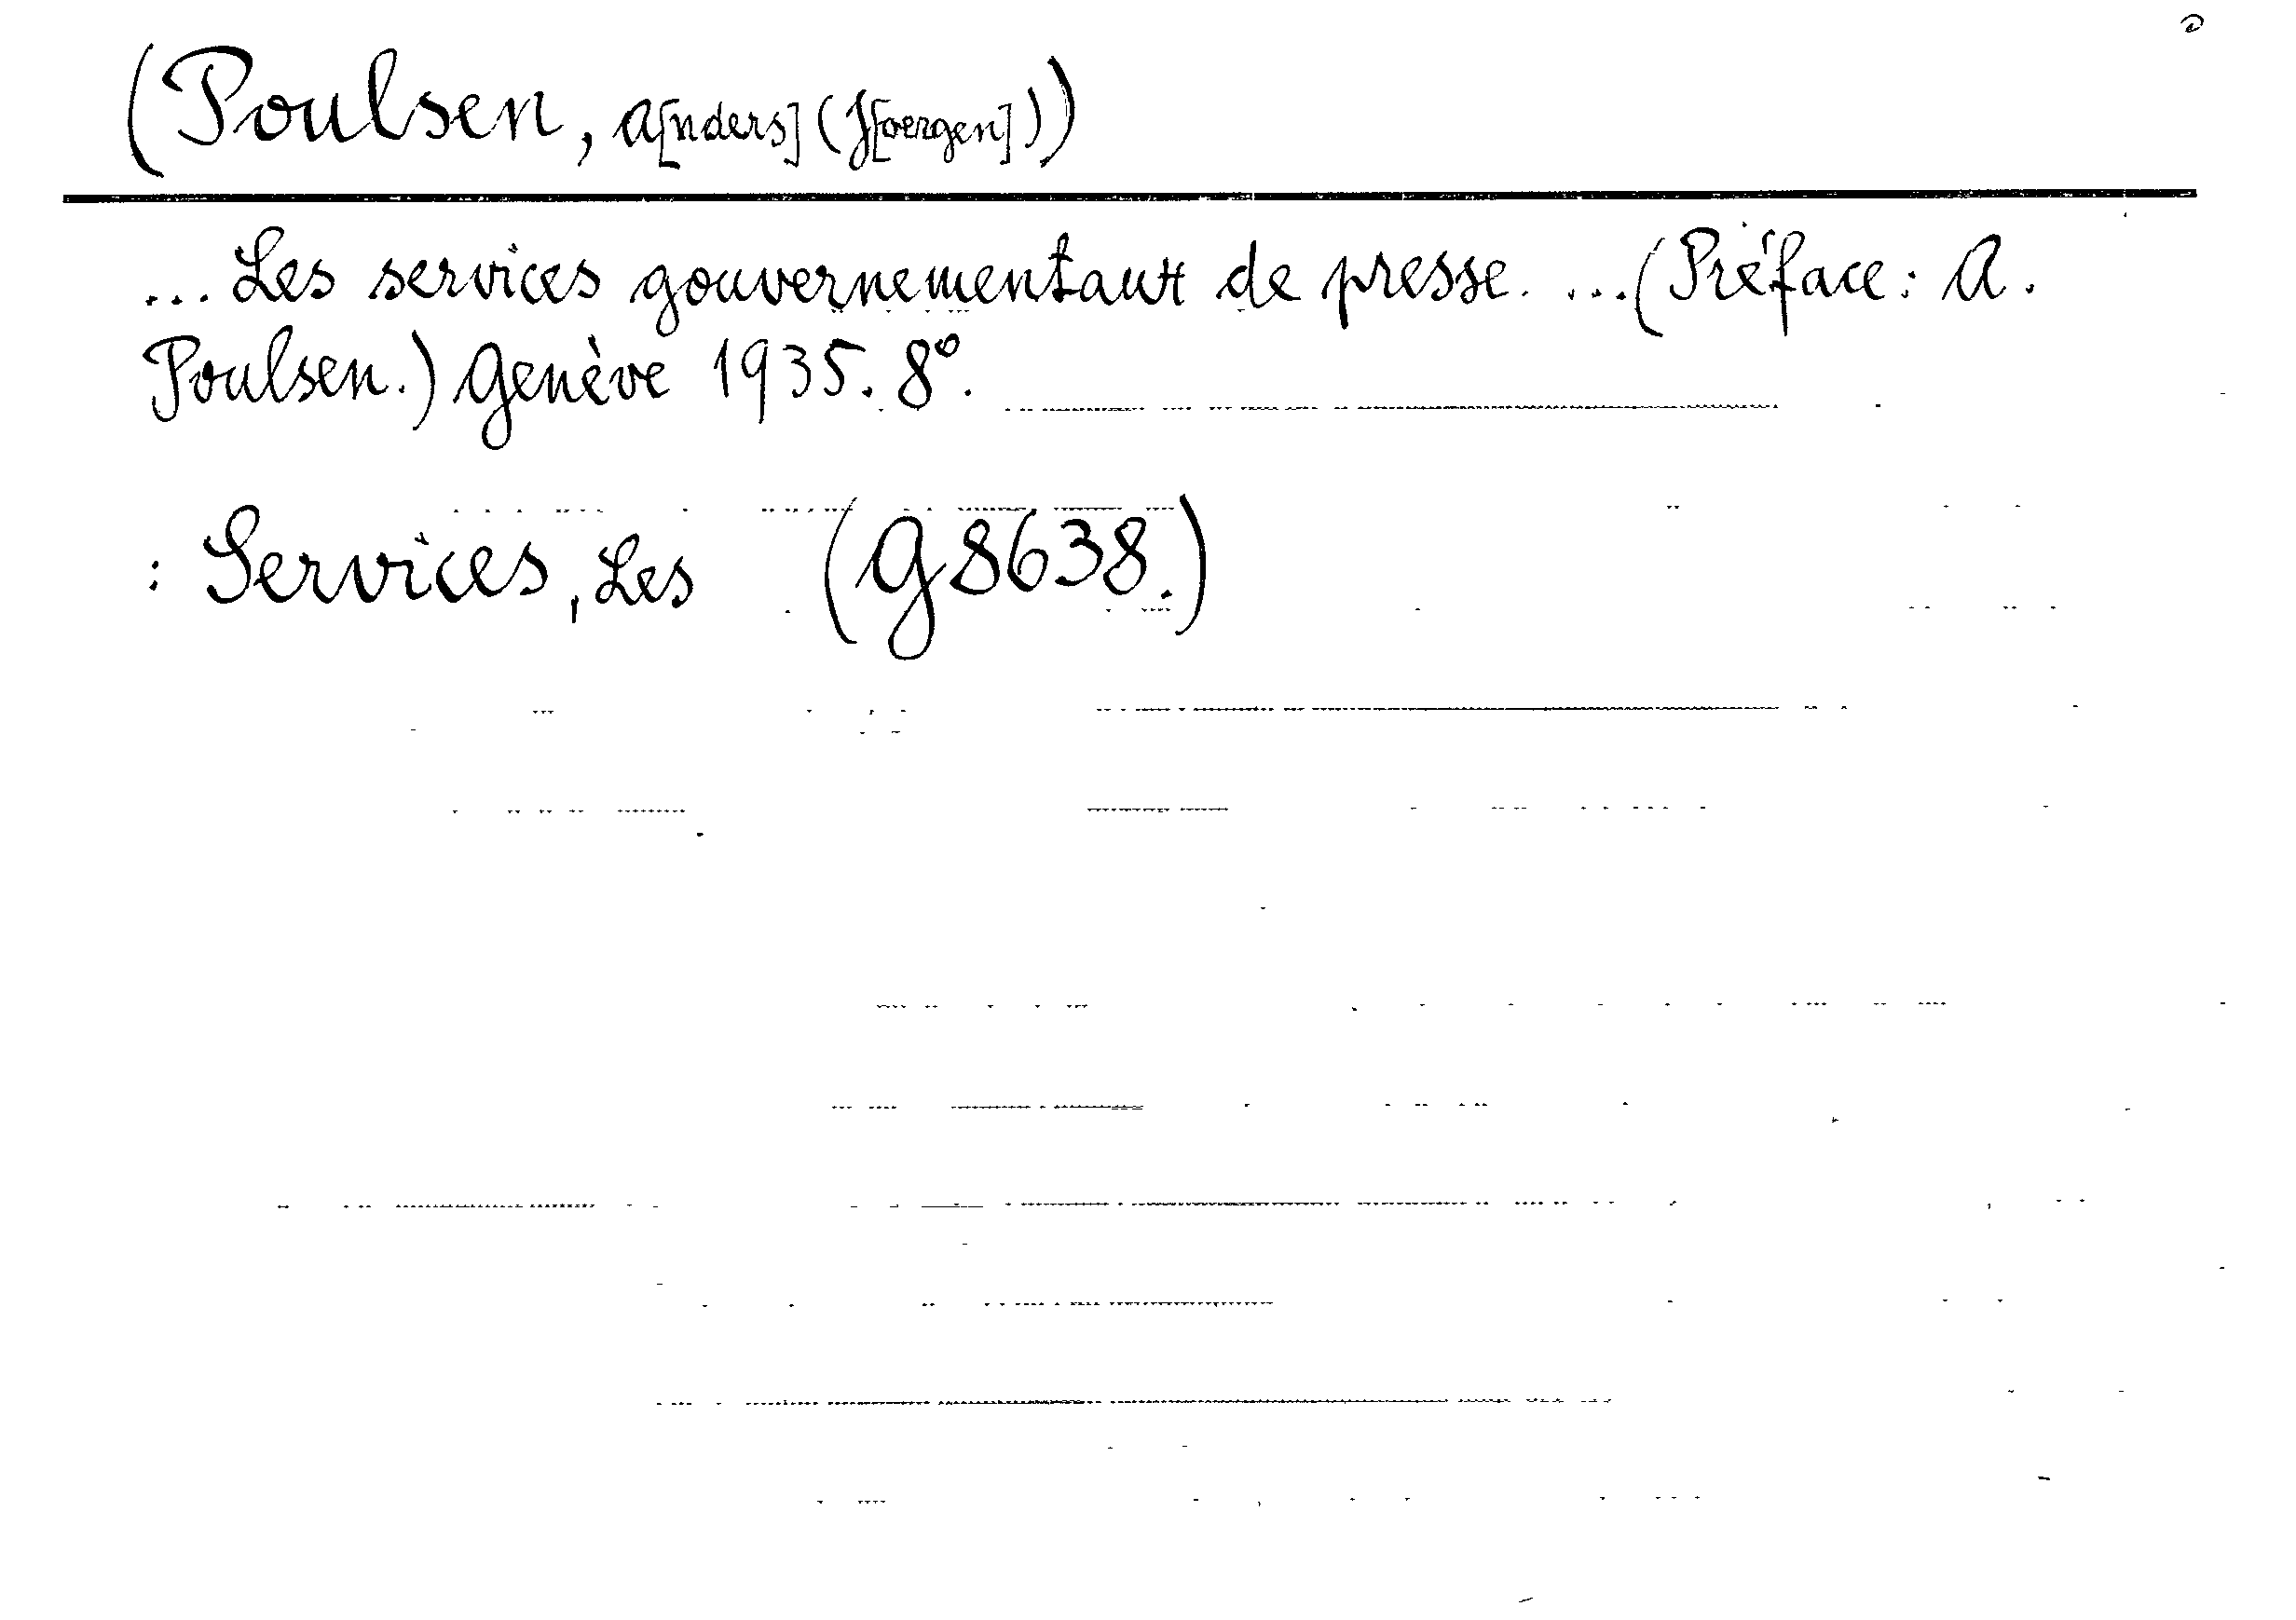 (Poulsen, A[nders] (J[oergen]))
... Les services gouvernementaux de presse. ... (Préface: A.
Poulsen.) Genève 1935. 8°.
: Services, Les (G 8638.)